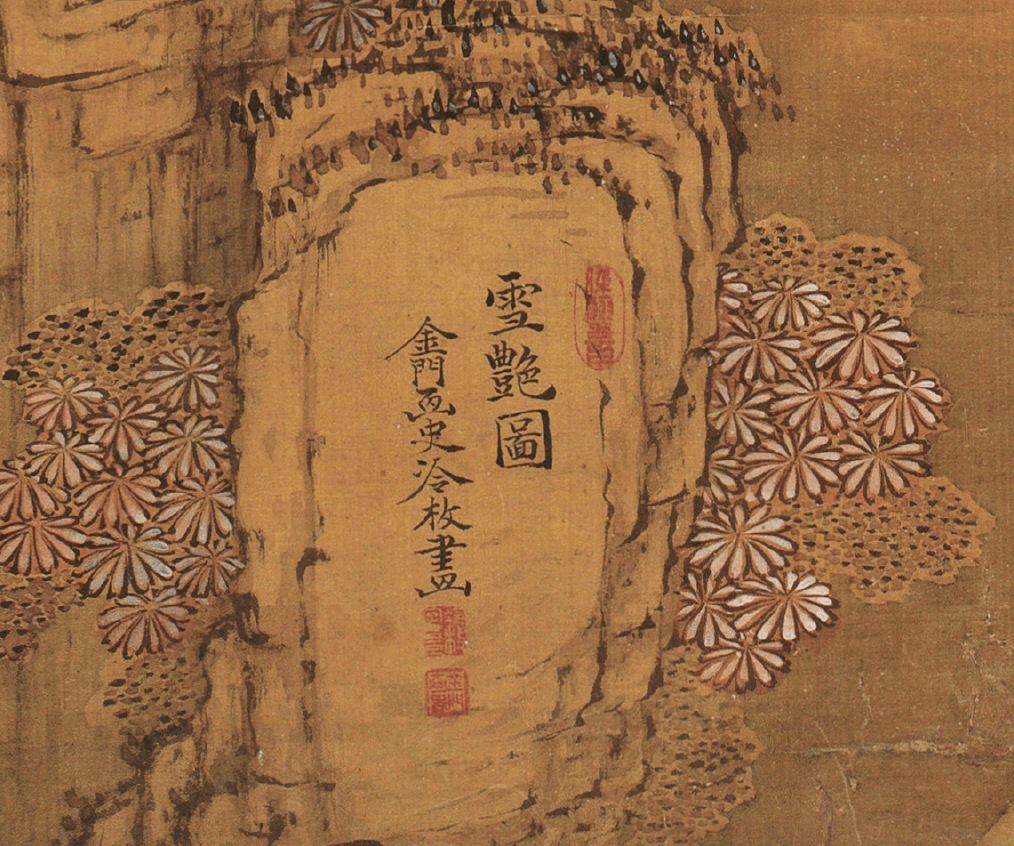 雪艷圖
金門画史冷枚畫